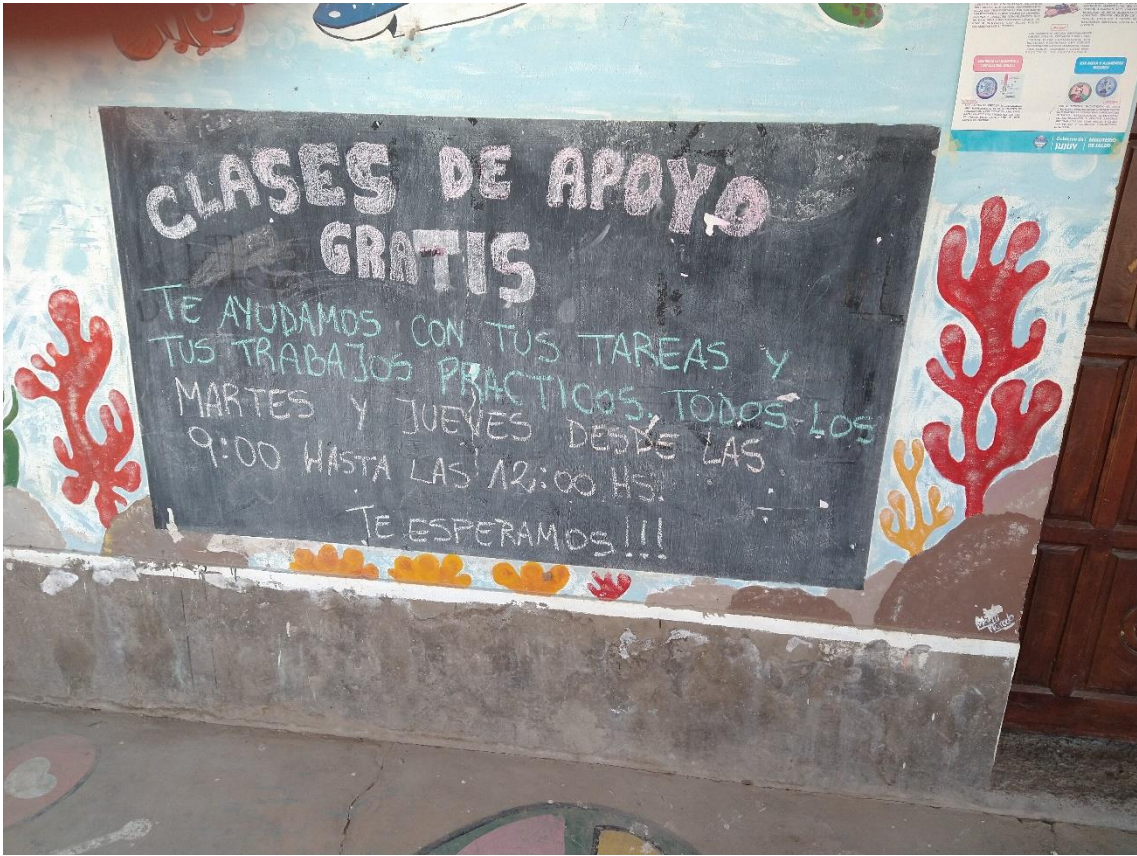 CLASES DE APOYO
GRATIS
TE AYUDAMOS CON TUS TAREAS Y
TUS TRABAJOS PRACTICOS. TODOS LOS
MARTES Y JUEVES DESDE LAS
9:00 HASTA LAS 12:00 HS.
TE ESPERAMOS!!!
JUJUY
MINISTERIO
DE SALUD